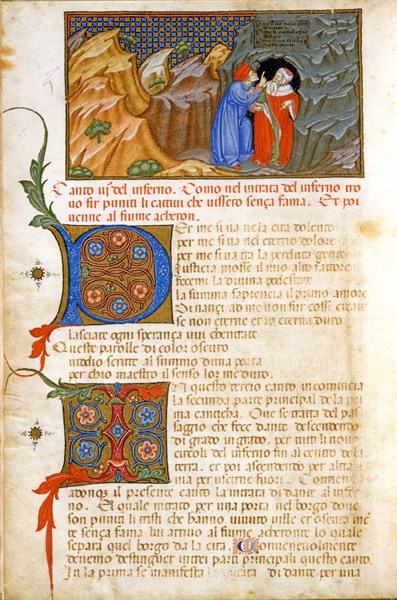 Canto del inferno. Como nel intrata del inferno tro
vo fir puniti li cattivi che vissero sença fama. Et poi
venne al fiume acheron.
PEr me si va ne la cita dolente
per me si va nel eterno dolore
per me si va tra la perduta gente
Justicia mosse il mio alto factore
fecemi la divina podestate
la summa sapiencia il primo amore
Dinançi ad me non fur cosse create
se non eterne et io eterna duro
lasciate ogni sperança vui chentrate
Queste parolle di color oscuro
vidio scritte al summo duna porta
per chio maestro il senso lor me duro.
IN questo tercio canto incomincia
la secunda parte principal de la pri
ma canticha. Que se tratta del pas
saggio che fece dante descendendo
di grado in grado. per tutti li nove
circoli del inferno fin al centro de la
terra. et poi ascendendo per altra
via per uscirne fuori. Contiene
adonque il presente canto la intrata di dante al infer
no. El quale intrato per una porta nel borgo dove
son puniti li tristi che hanno vivuto ville et oscura me
te sença fama lui arrivo al fiume acheronte lo quale
separa quel borgo da la cita. Convenevolmente
devemo destinguer in trei parti principali questo canto.
In la prima se manifesta la intrata di dante per una